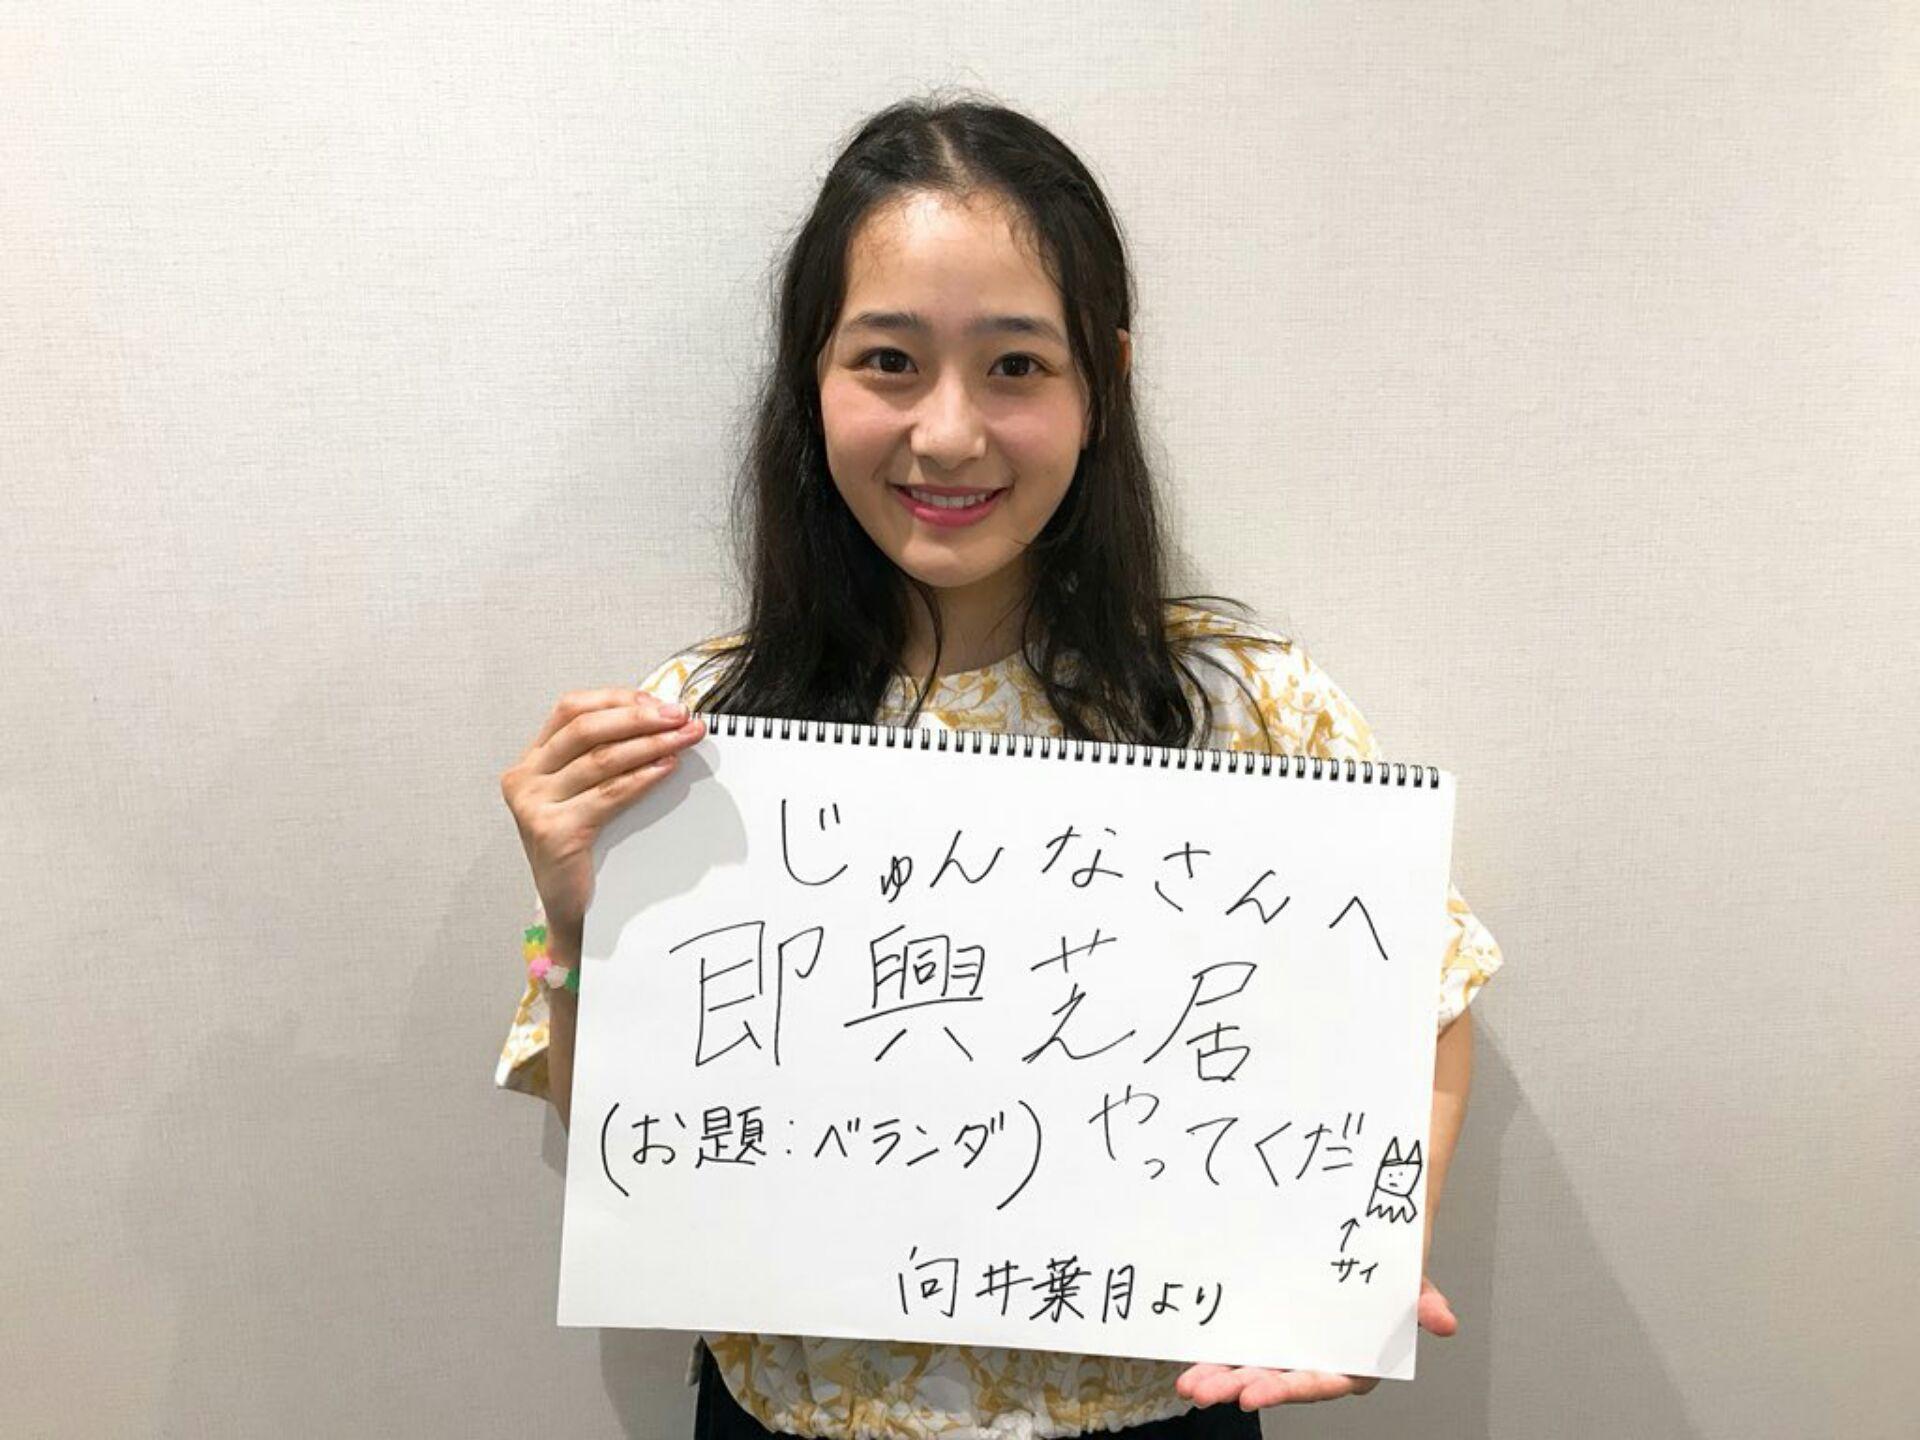 じゅんなさんへ
即興芝居
(お題:ベランダ) やってくだ
↑
サイ
向井葉月より